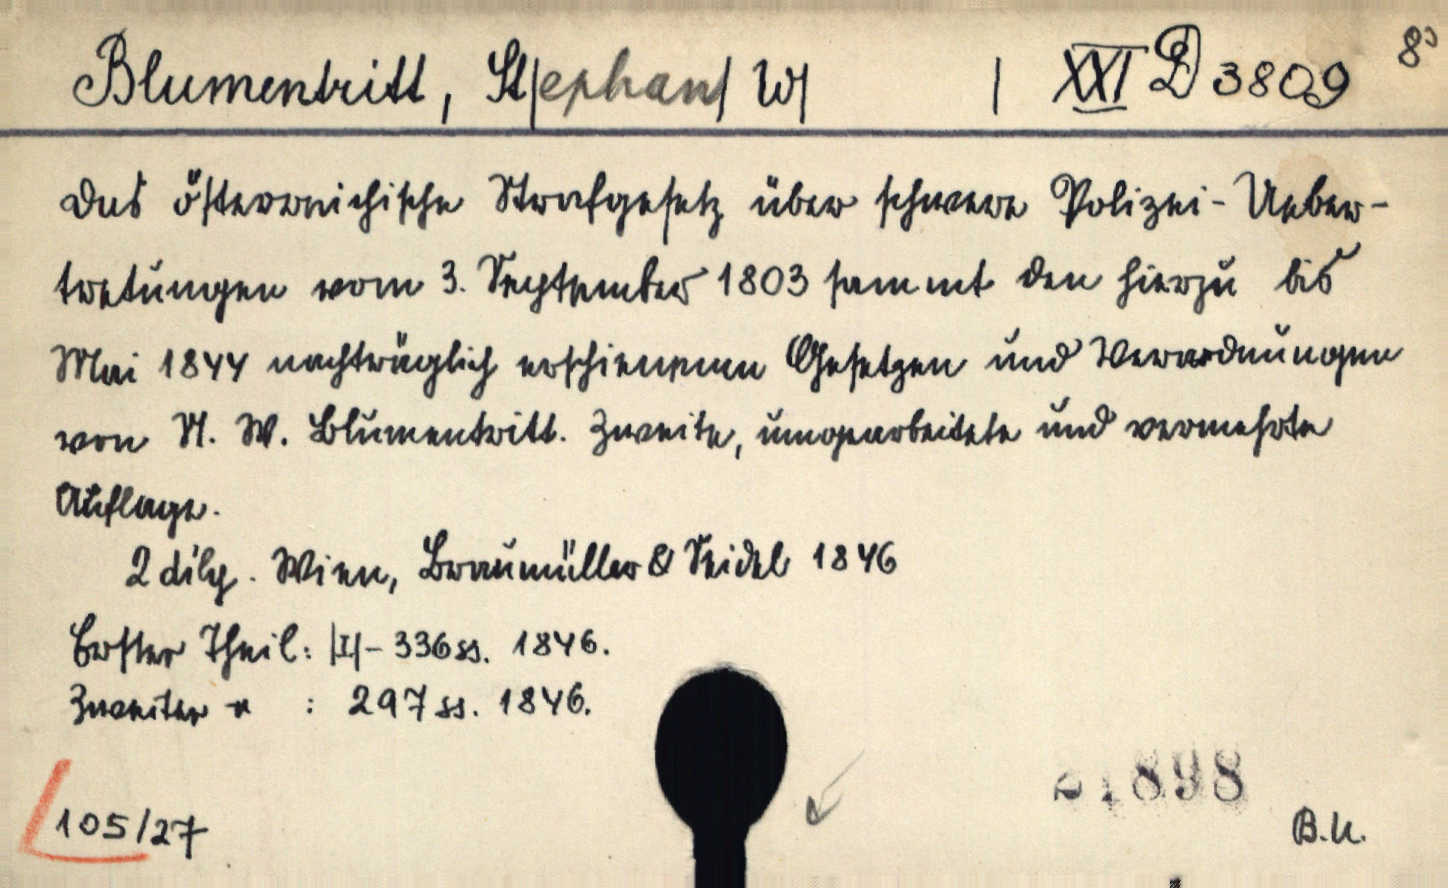 Blumentritt, St|ephan| W| | XXI D 3809 8°
Das österreichische Strafgesetz über schwere Polizei-Ueber-
tretungen vom 3. September 1803 sammt den hierzu bis
Mai 1844 nachträglich erschienenen Gesetzen und Verordnungen
von St. W. Blumentritt. Zweite, umgearbeitete und vermehrte
Auflage.
2 díly. Wien, Braumüller & Seidel 1846
Erster Theil: |I| - 336 ss. 1846.
Zweiter " : 297 ss. 1846.
21898
105/27
B.U.